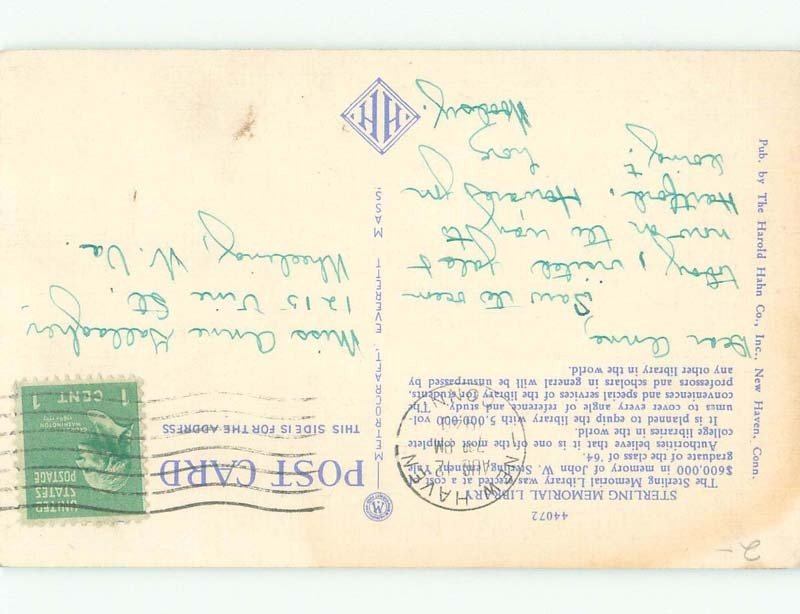 44072
STERLING MEMORIAL LIBRARY
The Sterling Memorial Library was erected at a cost of
$600,000 in memory of John W. Sterling, an eminent Yale
graduate of the class of '64.
Authorities believe that it is one of the most complete
college libraries in the world.
It is planned to equip the library with 5,000,000 vol-
umes to cover every angle of reference and study. The
conveniences and special services of the library for students,
professors and scholars in general will be unsurpassed by
any other library in the world.
Dear Anne,
Saw
visited Yale &
now on the way to
Hartford. Howard Jn
here
loving
Woolsey.
POST CARD
THIS SIDE IS FOR THE ADDRESS
UNITED
STATES
POSTAGE
1 CENT 1
NEW HAVEN
AUG 12
PM
CONN.
Miss Anne Gallagher,
1215 Vine St.
Wheeling, W. Va.
HH
Pub. by The Harold Hahn Co., Inc., New Haven, Conn.
2-